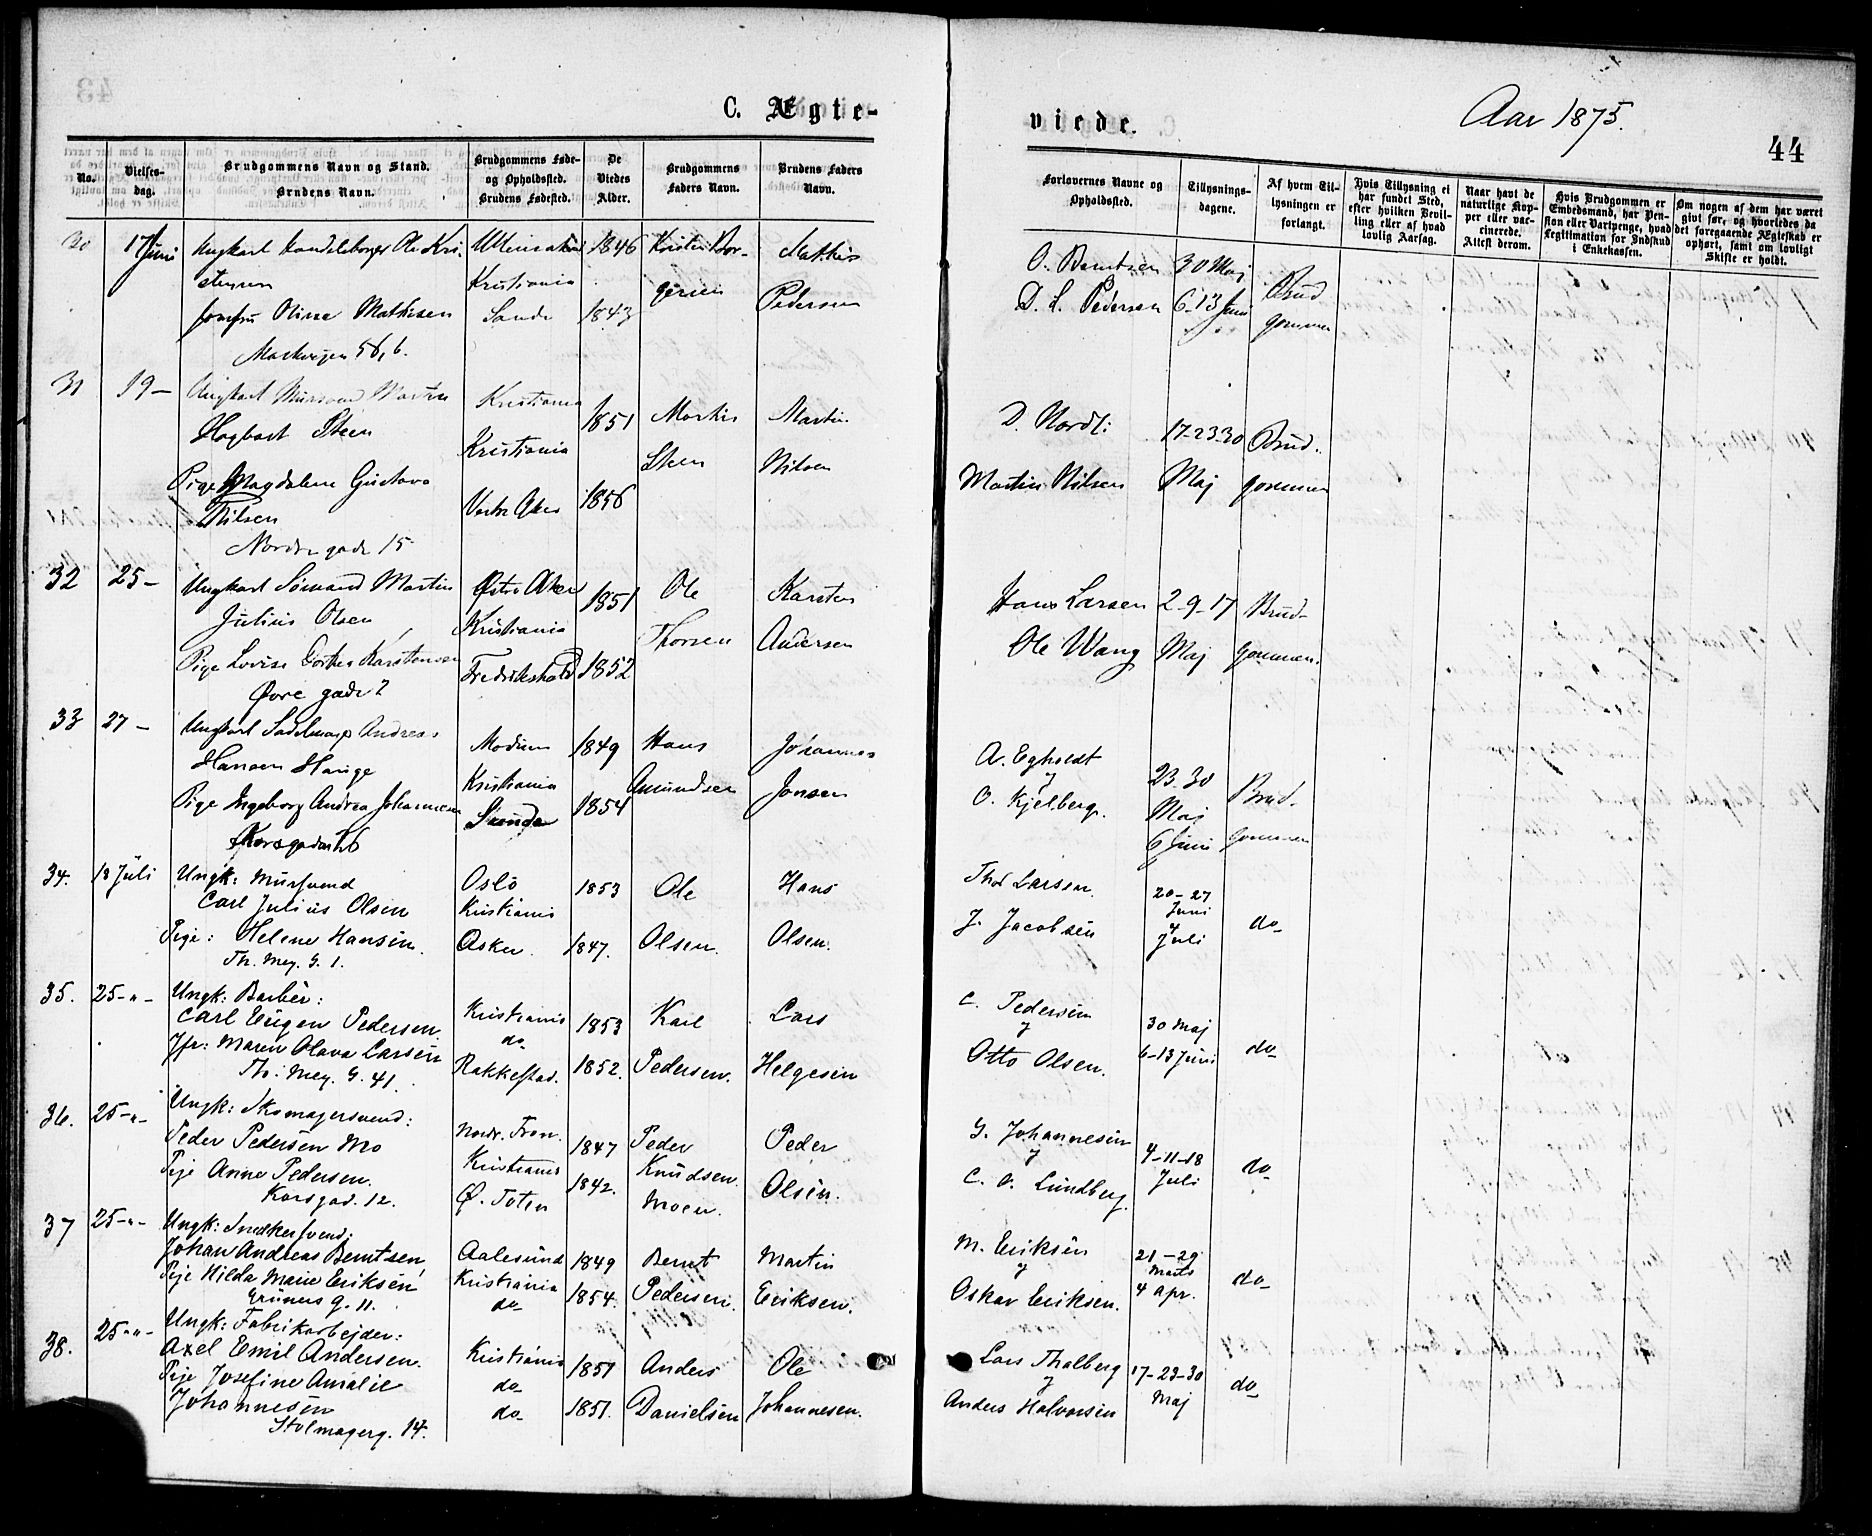 C. Ægte-
No.
Vielses-
dag.
Brudgommens Navn og Stand.
Brudens Navn.
Brudgommens Føde-
og Opholdssted.
Brudens Fødested.
De
Viedes
Alder.
Brudgommens
Faders Navn.
Brudens Faders
Navn.
30 17 Juni Ungkarl Ole Kri- 1846 Kristen Bor- Mathis
stensen Kristiania gersen Pedersen
Jomfru Oline Mathisen Sande 1843
Markvejen 56, b.
31 19- Ungkarl Mursvend Martin Kristiania 1851 Martin Martin
Hagbart Steen Kristiania Steen Nilsen
Pige Magdalene Gustava Vestre Aker 1856
Nilsen
Nordregade 15
32 25- Ungkarl Sømand Martin Østre Aker 1851 Ole Karsten
Julius Olsen Kristiania Thorsen Andersen
Pige Lovise Karstensen Fredrikshald 1852
Øvre gade 2
33 27- Ungkarl Sadelmager Andreas Modum 1849 Hans Johannes
Hansen Hauge Kristiania Amundsen Jonsen
Pige Ingeborg Andrea Johannesen 1854
Korsgaden
34. 18 Juli Ungk: Mursvend Oslo 1853 Ole Hans
Carl Julius Olsen Kristiania
Pige: Helene Hansen. Asker. 1847. Olsen. Olsen.
Th. Mey. G. 1.
35. 25-"- Ungk: Barbér: Kristiania 1853 Karl Lars
Carl Eugen Pedersen. do
Jfr: Maren Olava Larsen Rakkestad. 1852. Pedersen. Helgesen
Th: Mey. G. 41.
36. 25-"- Ungk: Skomagersvend:
Peder Pedersen Mo Nordr. Fron. 1847 Peder Peder
Pige Anne Pedersen. Kristiania 1842. Knudsen Olsen.
Korsgad. 12. Ø. Toten Moen.
37 25-"- Ungk: Snedkersvend:
Johan Andreas Berntsen, Aalesund 1849 Bernt Martin
Pige Hilda Marie Eriksen Kristiania 1854. Pedersen. Eriksen.
Grüners G. 11. do
38. 25-"- Ungk: Fabrikarbejder:
Axel Emil Andersen. Kristiania 1851 Anders Ole
Pige Josefine Amalie do
Johannesen do 1851. Danielsen Johannesen.
Stolmagerg. 14.
viede.
Aar 1875.
44
Forlovernes Navne og
Opholdssted.
Tillysnings-
dagene.
Af hvem Til-
lysningen er
forlangt.
Hvis Tillysning ei
har fundet Sted,
efter hvilken Bevil-
ling eller af hvad
lovlig Aarsag.
Naar havt de
naturlige Kop-
per eller vac-
cinerede.
Attest derom.
Hvis Brudgommen er
Embedsmand, har Pen-
sion eller Vartpenge, hvad
Legitimation for Indskud
i Enkekassen.
Om nogen af dem har været
gift før, og hvorledes da
det foregaaende Ægteskab er
ophørt, samt om lovligt
Skifte er holdt.
O. Berntsen 30 Maj Brud
D. L. Pedersen 6-13 Juni gommen
D. Nordli 17-23-30 Brud-
Martin Nilsen Maj gommen
Hans Larsen 2-9-17 Brud-
Ole Wang Maj gommen.
A. Egholdt 23-30
O. Kjelberg. Maj Brud-
6 Juni gommen
Thor Larsen. 20-27
Juni do
J. Jacobsen 4 Juli
C. Pedersen 30 Maj
Otto Olsen. 6-13 Juni do
G. Johannesen 4-11-18 do
C. O. Lundberg. Juli
M. Eriksen 21-29
Marts do
Oskar Eriksen. 4 Apr.
Lars Thalberg 17-23-30 do
Anders Halvorsen Maj